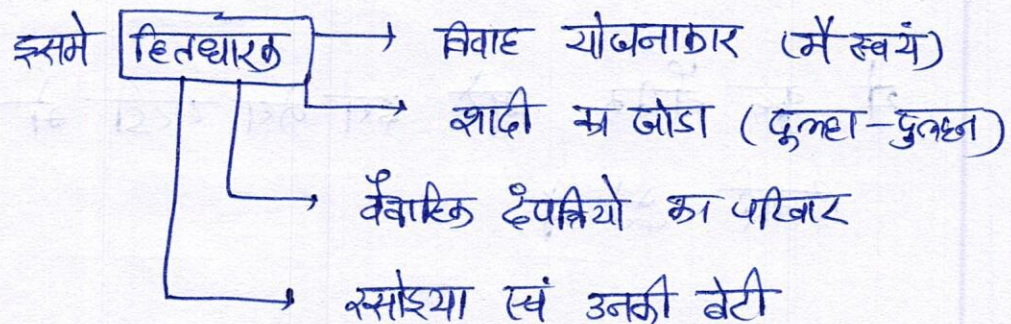 इसमे हितधारक → विवाह योजनाकार (मै स्वयं)
→ शादी का जोडा (दूल्हा-दुल्हन)
→ वैवाहिक दंपत्तियो का परिवार
→ रसोइया एवं उनकी बेटी